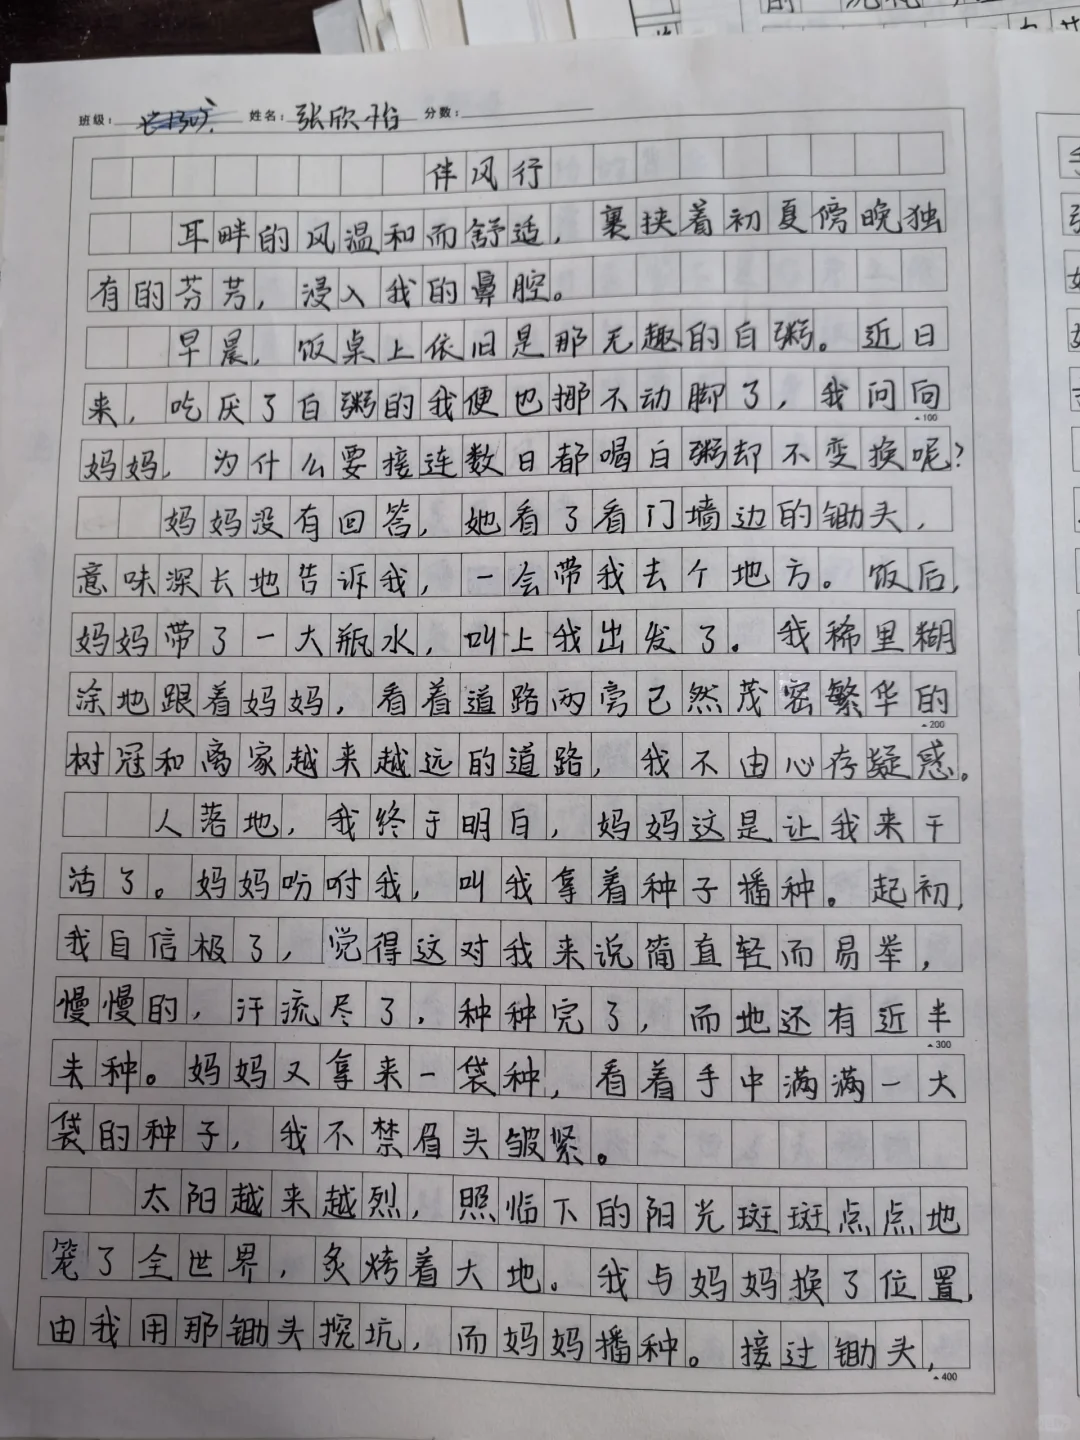 班级： 姓名：张欣怡 分数：
伴风行
耳畔的风温和而舒适，裹挟着初夏傍晚独
有的芬芳，浸入我的鼻腔。
早晨，饭桌上依旧是那无趣的白粥。近日
来，吃厌了白粥的我便也挪不动脚了，我问向
100
妈妈，为什么要接连数日都喝白粥却不变换呢？
妈妈没有回答，她看了看门墙边的锄头，
意味深长地告诉我，一会带我去个地方。饭后，
妈妈带了一大瓶水，叫上我出发了。我稀里糊
涂地跟着妈妈，看着道路两旁已然茂密繁华的
200
树冠和离家越来越远的道路，我不由心存疑惑。
人落地，我终于明白，妈妈这是让我来干
活了。妈妈吩咐我，叫我拿着种子播种。起初，
我自信极了，觉得这对我来说简直轻而易举，
慢慢的，汗流尽了，种种完了，而地还有近半
300
未种。妈妈又拿来一袋种，看着手中满满一大
袋的种子，我不禁眉头皱紧。
太阳越来越烈，照临下的阳光斑斑点点地
笼了全世界，炙烤着大地。我与妈妈换了位置，
由我用那锄头挖坑，而妈妈播种。接过锄头，
400